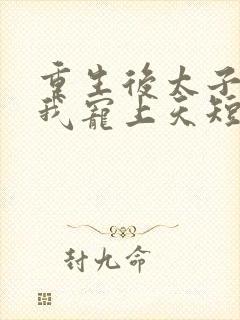 重生後太子
我寵上天短
封九命